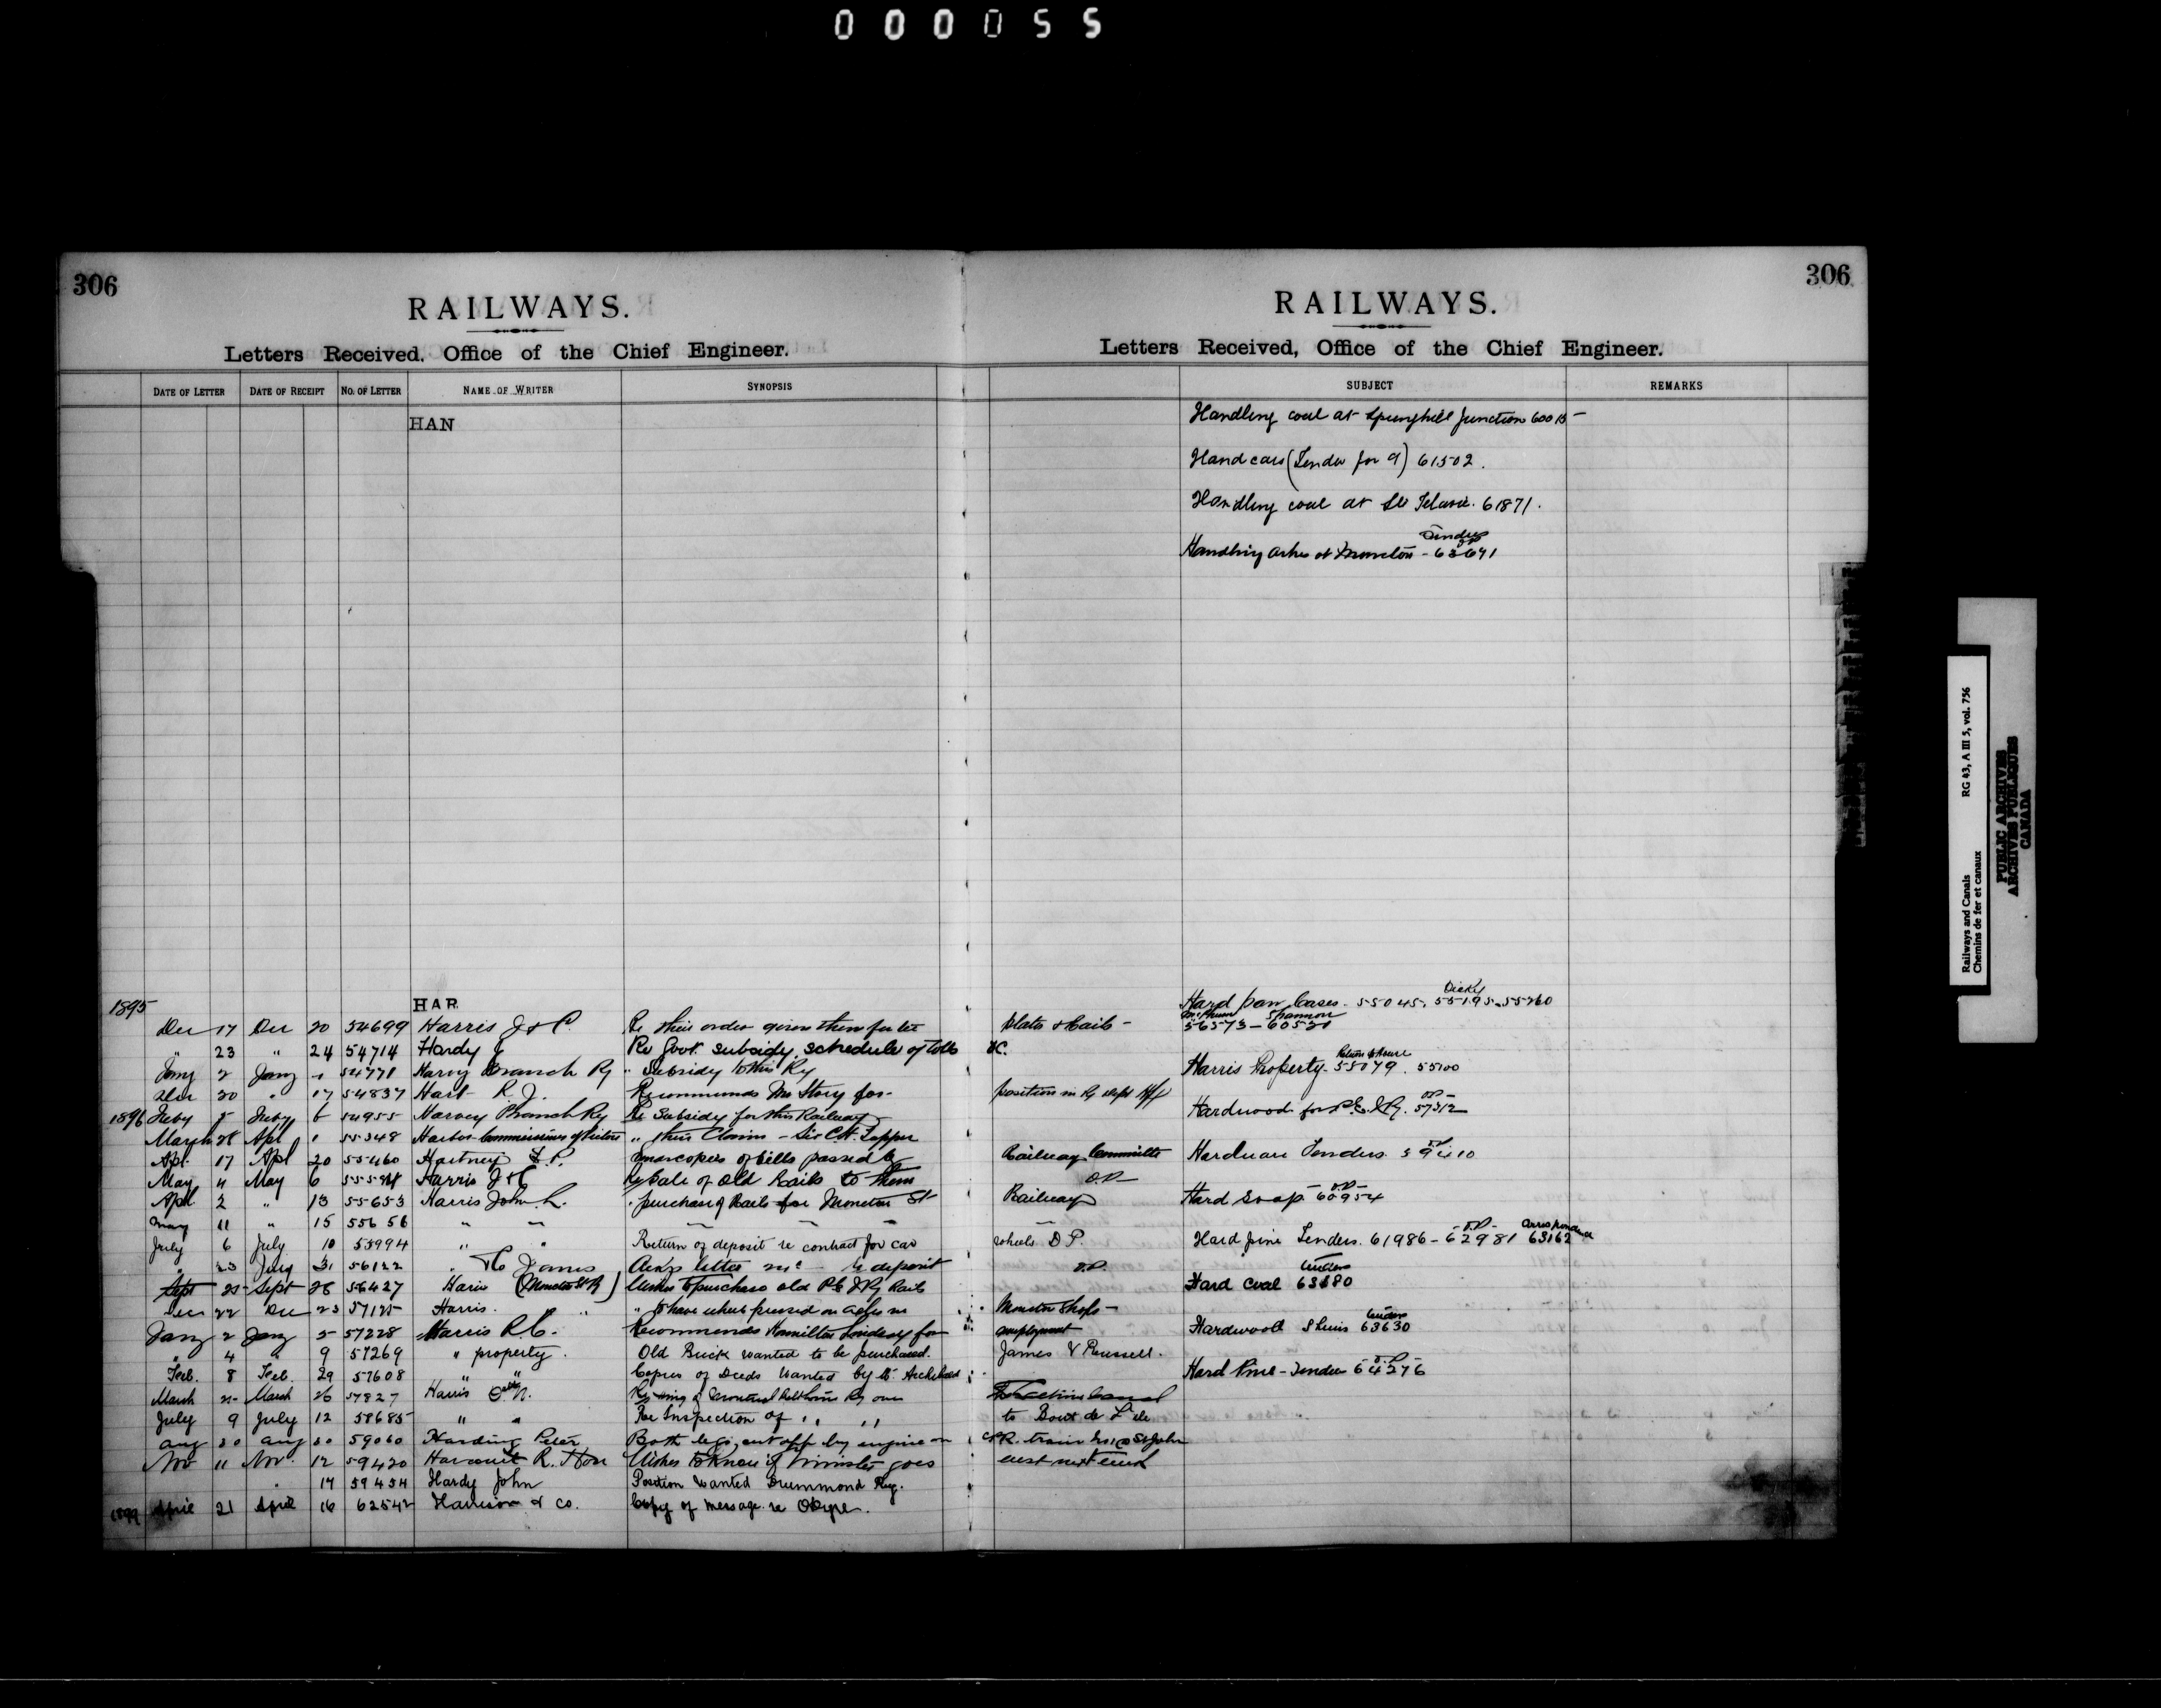 000055
306
RAILWAYS.
Letters Received, Office of the Chief Engineer.
DATE OF LETTER DATE OF RECEIPT NO. OF LETTER NAME OF WRITER SYNOPSIS
HAN
1895
HAR
Dec 17 Dec 20 54699 Harris J & C. Re their order given them for
" 23 " 24 54714 Hardy Re Govt. subsidy, schedule of tolls
Jany 2 Jany 54771 Harvey Branch Ry " Subsidy to this Ry
Dec 20 " 17 54837 Hart R. J. Recommends Mr Story for
1896 Feby 5 Feby 6 54955 Harvey Branch Ry Re Subsidy for this Railway
March 28 Apl 1 55348 Harbor Commissioners of Pictou " their Claims - Sir C.H. Tupper
Apl 17 Apl 20 55460 Hartney copies of bills passed by
May 4 May 6 Harris J & C Re Sale of Old Rails to them
Apl 2 " 13 55653 Harris John L. " purchase of Rails for Moncton St
May 11 " 15 55656 " "
July 6 July 10 55994 " " Return of deposit re contract for car
" 23 July 31 56122 " James letter re deposit
Sept 25 Sept 28 56427 Harris (Moncton St Ry) Wishes to purchase old P.E.I. Ry Rails
Dec 22 Dec 23 57125 Harris. " " to have wheels pressed on axles in
Jany 2 Jany 5 57228 Harris R.C. Recommends Hamilton Lindsay for
" 4 " 9 57269 " property. Old Brick wanted to be purchased.
Feb. 8 Feb. 29 57608 " " Copies of Deeds wanted by Mr Archibald
March 25 March 26 57827 Harris C.N. Re Ry over
July 9 July 12 58685 " " Re Inspection of " "
Aug 20 Aug 20 59060 Harding Peter Both legs cut off by engine on
Nov 11 Nov. 12 59420 Harcourt R. Hon Wishes to know if Minister goes
14 59454 Hardy John Position wanted Drummond Ry.
1899 April 21 April 16 62542 Harrison & Co. Copy of message re
306
RAILWAYS.
Letters Received, Office of the Chief Engineer.
SUBJECT REMARKS
Handling coal at Springhill Junction 60015
Hand cars (Tender for 9) 61502.
Handling coal at Ste Flavie. 61871.
Tenders
Handling ashes at Moncton - 63691
Dicky
Hard pan Cases. 55045. 55195. 55260
Shannon
56573 - 60521
plates & rails -
&c.
Return to House
Harris Property. 55079. 55100
position in Ry Dept
O.P.
Hardwood for P.E.I. Ry. 57312
Railway Committee Hardware Tenders. 59410
O.P.
Railway Hard Soap 60954
wheels D.P. Hard pine Tenders. 61986 - 62981 63162
O.P.
Tenders
Hard Coal 63680
Moncton Shops -
employment
Tenders
Hardwood 63630
James & Russell.
Hard Pine - Tender 64276
to Bout de L'Ile
CPR. train St John
east next week
Railways and Canals RG 43, A III 5, vol. 756
Chemins de fer et canaux
PUBLIC ARCHIVES
ARCHIVES PUBLIQUES
CANADA